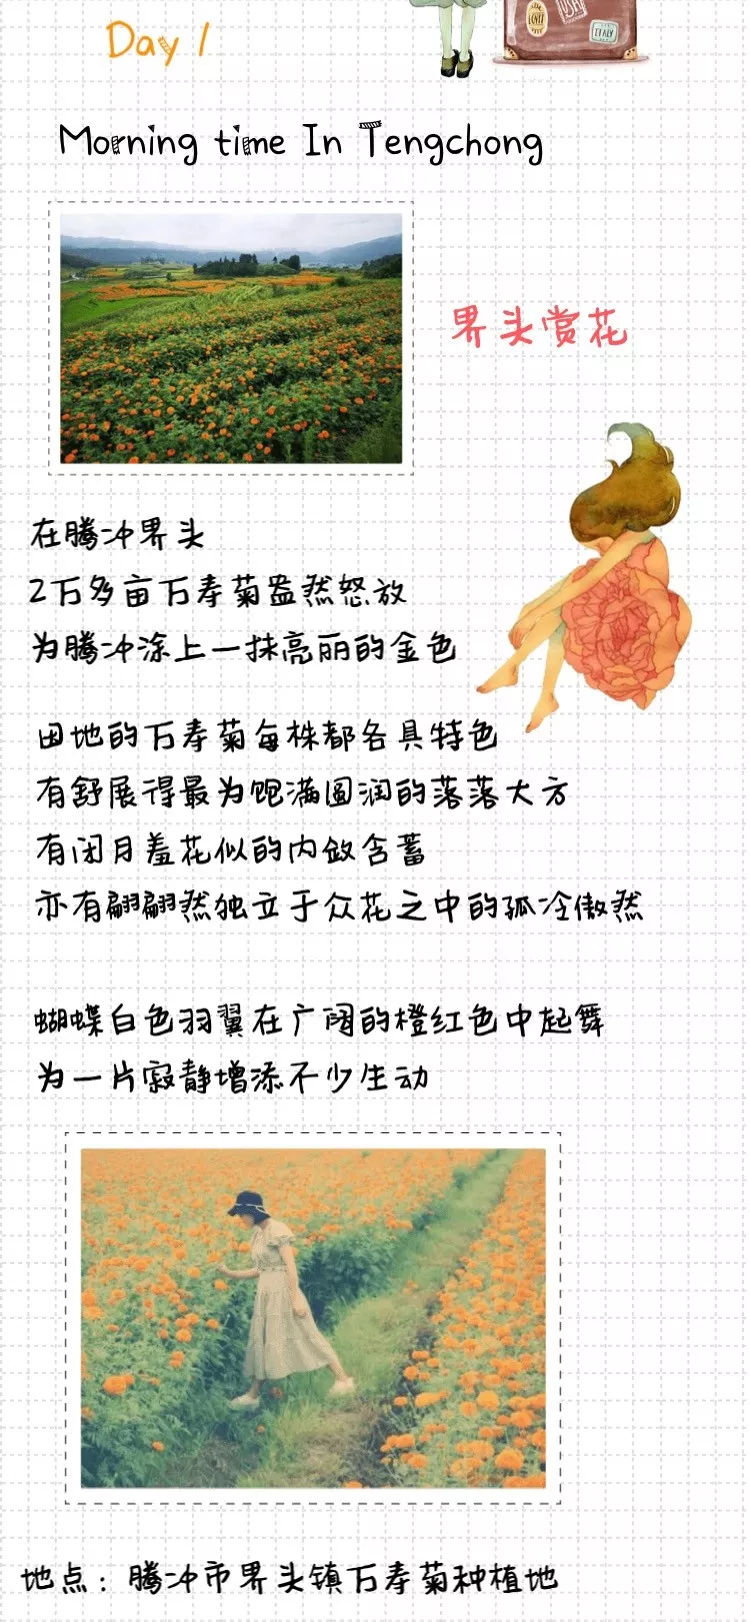 Day 1
LOVE
USA
ITALY
Morning time In Tengchong
界头赏花
在腾冲界头
2万多亩万寿菊盎然怒放
为腾冲涂上一抹亮丽的金色
田地的万寿菊每株都各具特色
有舒展得最为饱满圆润的落落大方
有闭月羞花似的内敛含蓄
亦有翩翩然独立于众花之中的孤冷傲然
蝴蝶白色羽翼在广阔的橙红色中起舞
为一片寂静增添不少生动
地点：腾冲市界头镇万寿菊种植地